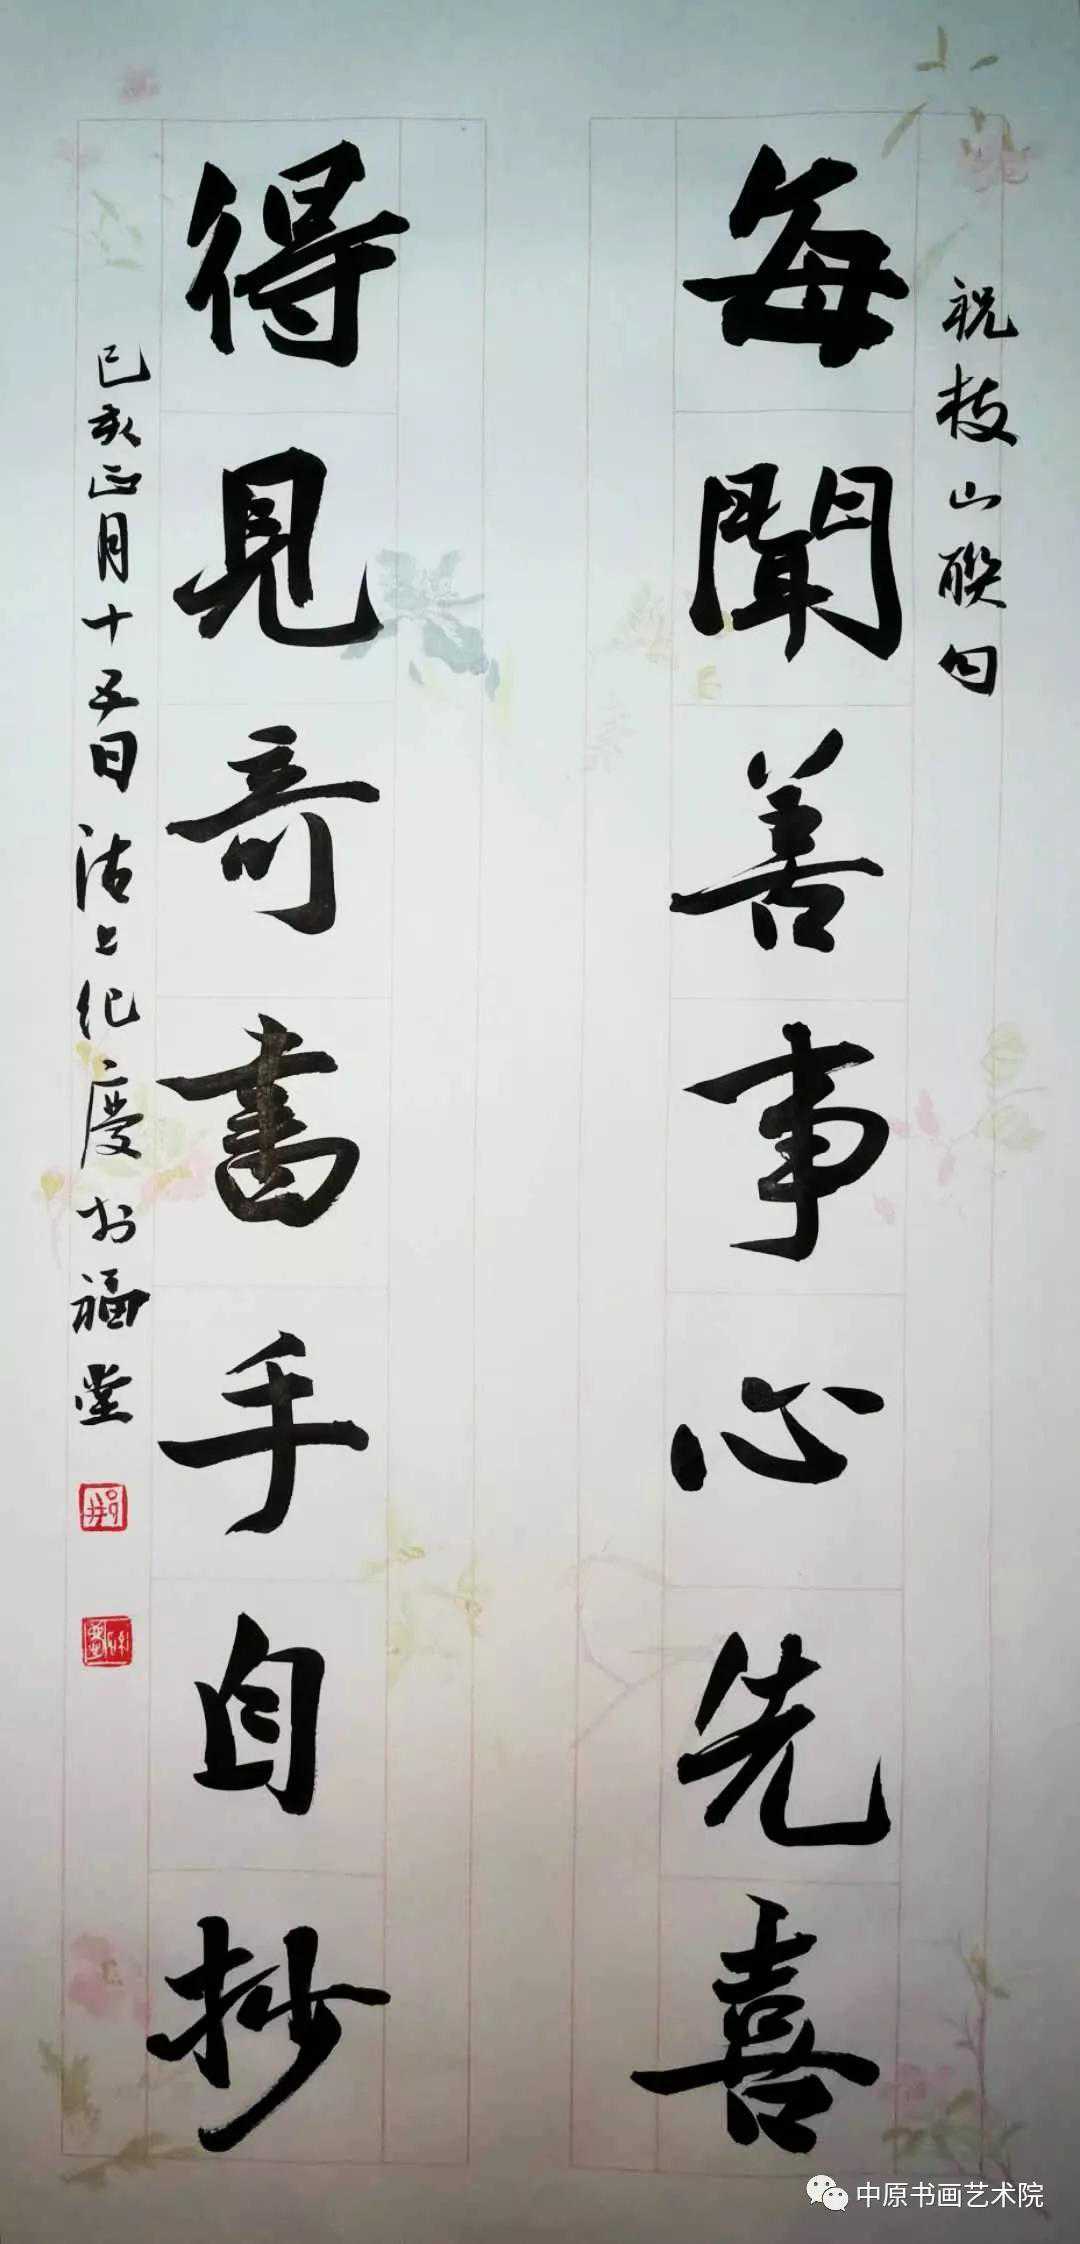 祝枝山联句
每聞善事心先喜
得見奇書手自抄
己亥正月十五日沽上纪慶於福堂
中原书画艺术院